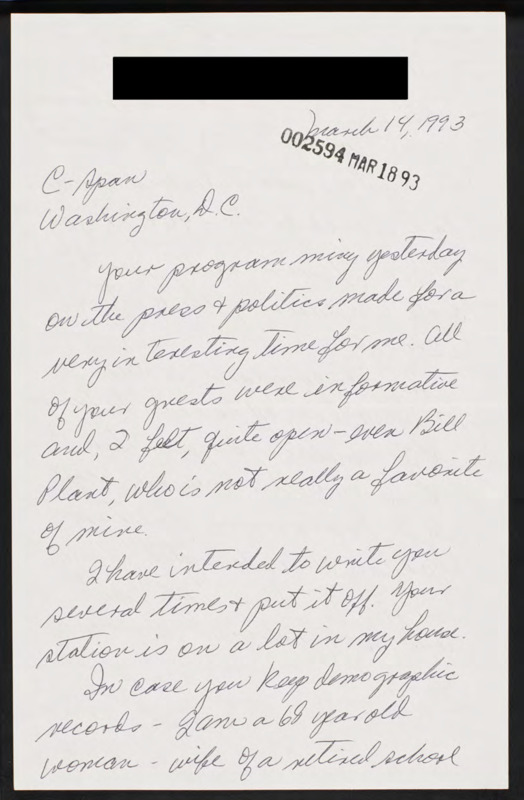 March 14, 1993
002594 MAR 18 93
C-Span
Washington, D.C.
Your program ming yesterday
on the press & politics made for a
very interesting time for me. All
of your guests were informative
and, I felt, quite open - even Bill
Plant, who is not really a favorite
of mine.
I have intended to write you
several times & put it off. Your
station is on a lot in my house.
In case you keep demographic
records - I am a 68 year old
woman - wife of a retired school